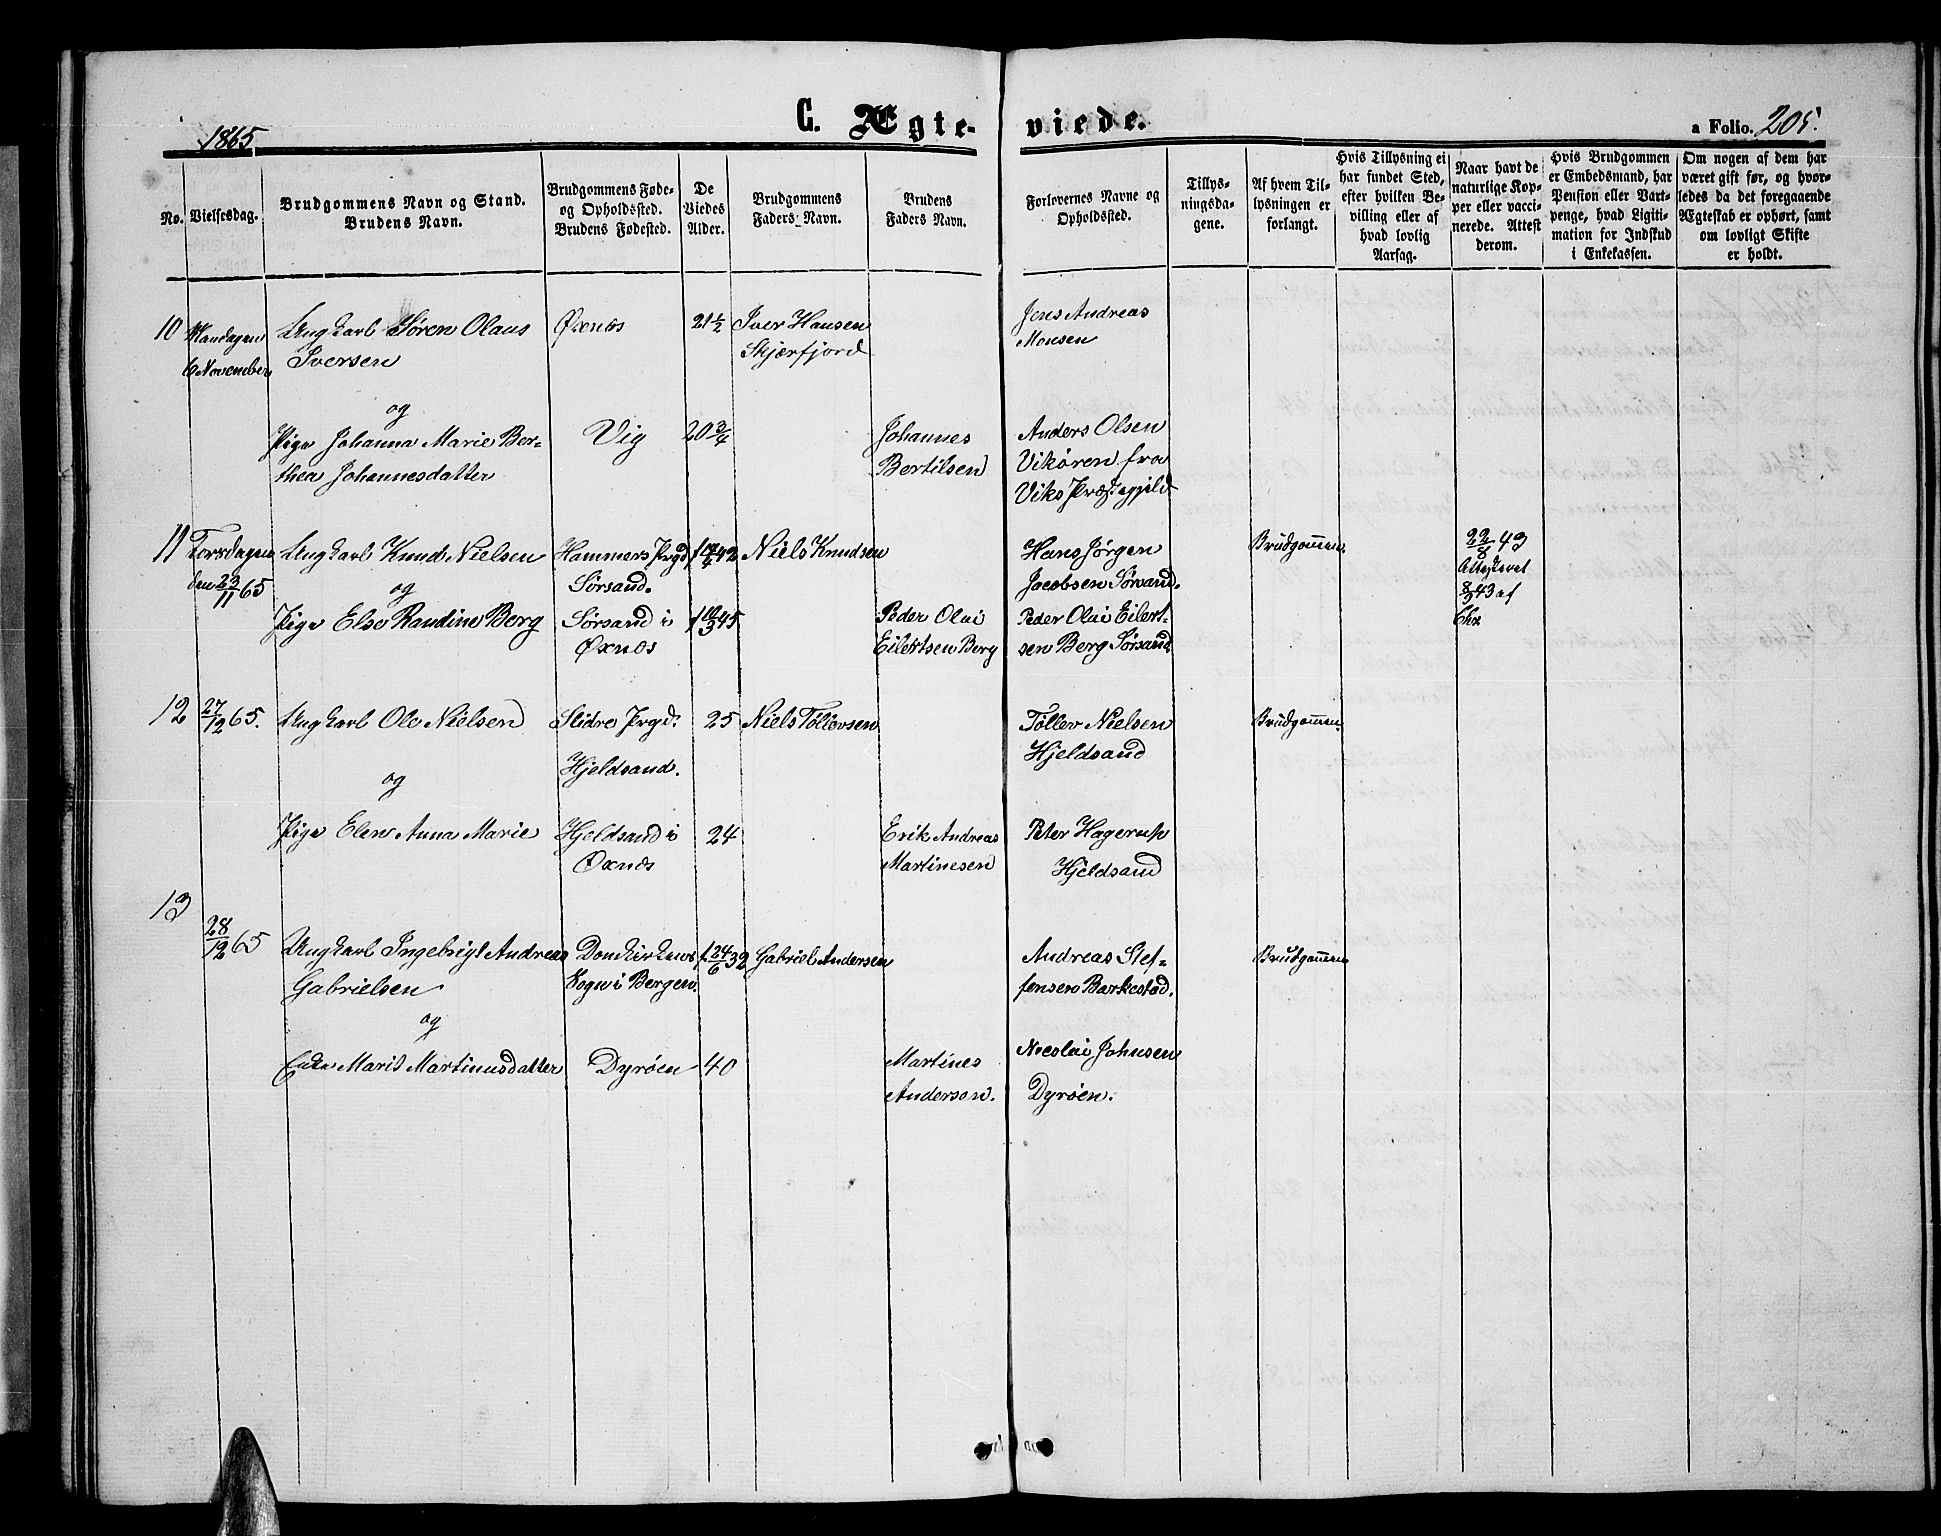 1865
C. Ægteviede.
a Folio. 205.
No.
Vielsesdag.
Brudgommens Navn og Stand.
Brudens Navn.
Brudgommens Føde-
og Opholdssted.
Brudens Fødested.
De
Viedes
Alder.
Brudgommens
Faders Navn.
Brudens
Faders Navn.
Forlovernes Navne og
Opholdssted.
Tillys-
ningsda-
gene.
Af hvem Til-
lysningen er
forlangt.
Hvis Tillysning ei
har fundet Sted,
efter hvilken Be-
villing eller af
hvad lovlig
Aarsag.
Naar havt de
naturlige Kop-
per eller vacci-
nerede. Attest
derom.
Hvis Brudgommen
er Embedsmand, har
Pension eller Vart-
penge, hvad Ligiti-
mation for Indskud
i Enkekassen.
Om nogen af dem har
været gift før, og hvor-
ledes da det foregaaende
Ægteskab er ophørt, samt
om lovligt Skifte
er holdt.
10
Mandagen
6 November
Ungkarl Søren Olaus
Iversen
og
Pige Johanna Marie Ber-
thea Johannesdatter
Øxnes
Vig
21 1/2
20 3/4
Iver Hansen
Skjærfjord
Johannes
Bertilsen
Jens Andreas
Monsen
Anders Olsen
Vikøren fra
Viks Præstegjeld
11
Torsdagen
den 23/11 65
Ungkarl Knud Nielsen
og
Pige Else Randine Berg
Hammers Prgd
Sørsand.
Sørsand i
Øxnes
42
45
Niels Knudsen
Peder Olai
Eilertsen Berg
Hans Jørgen
Jacobsen Sørsand.
Peder Olai Eilert-
sen Berg Sørsand
Brudgommen
22/8 43
43 af
12
27/12 65.
Ungkarl Ole Nielsen
og
Pige Elen Anna Marie
Slidre Prgd.
Hjeldsand.
Hjeldsand i
Øxnes
25
24
Niels Tollevsen
Erik Andreas
Martinesen
Tollev Nielsen
Hjeldsand
Peter Hagerup
Hjeldsand
Brudgommen.
13
28/12 65
Ungkarl Ingebrigt Andreas
Gabrielsen
og
Enke Marit Martinusdatter
Domkirkens
Sogn i Bergen.
Dyrøen
f. 24/6 32
40
Gabriel Andersen
Martines
Andersen.
Andreas Stef-
fensen Barkestad.
Nicolai Johnsen
Dyrøen.
Brudgommen